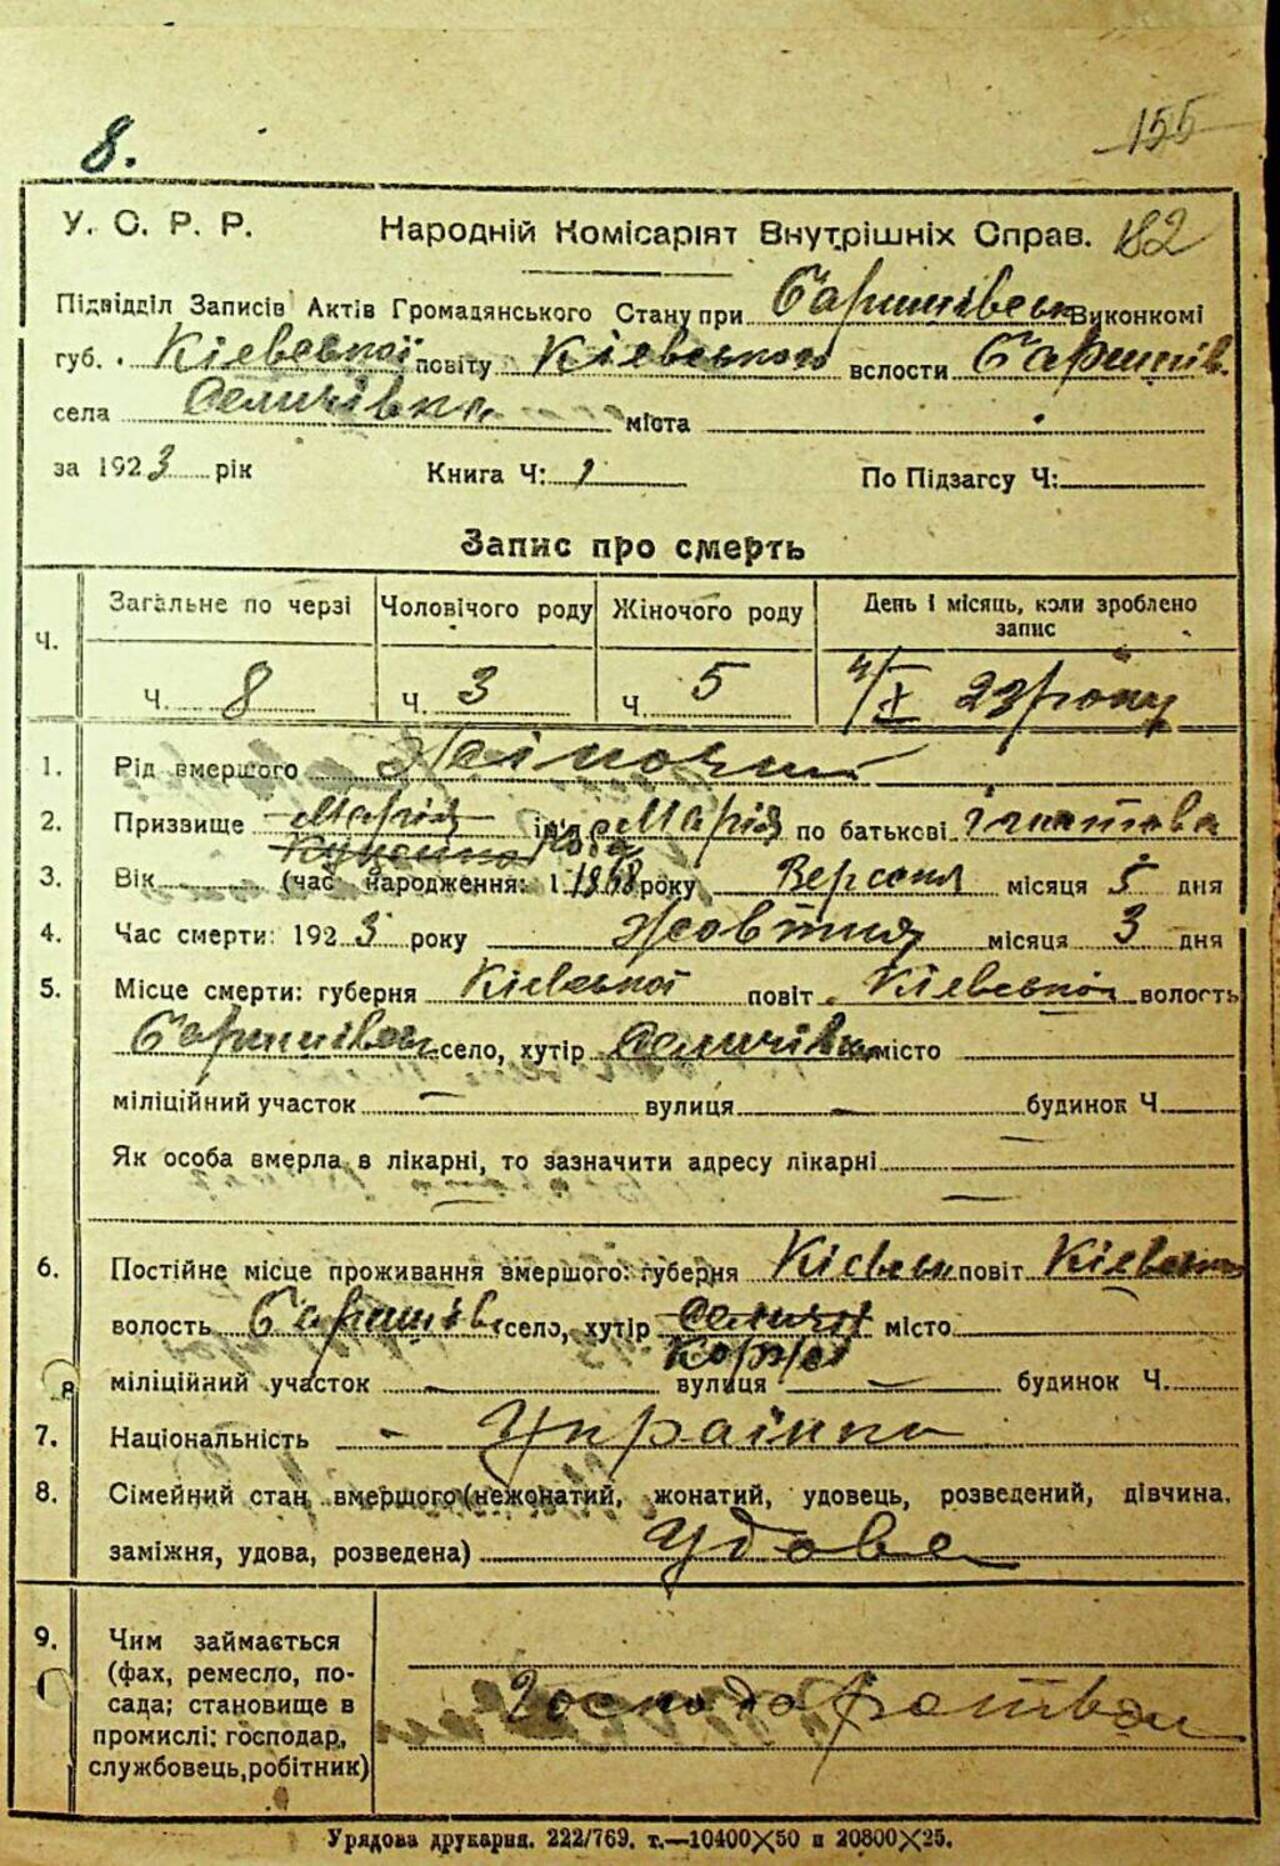 8.
155
У. С. Р. Р. Народній Комісаріят Внутрішніх Справ. 182
Підвідділ Записів Актів Громадянського Стану при Баришівськ Виконкомі
губ. Кієвської повіту Кієвського вслости Баришів.
села Селичівка міста
за 1923 рік Книга Ч: 1 По Підзагсу Ч:
Запис про смерть
Ч. Загальне по черзі Чоловічого роду Жіночого роду День і місяць, коли зроблено запис
Ч. 8 Ч. 3 Ч. 5 4/X 23 року
1. Рід вмершого Жіночий
2. Призвище Марія ім'я Марія по батькові Ігнатова
Куценко
3. Вік (час народження: 1 1868 року Версня місяця 5 дня
4. Час смерти: 1923 року Жовтня місяця 3 дня
5. Місце смерти: губерня Кієвської повіт Кієвської волость
Баришівськ село, хутір Селичівка місто
міліційний участок — вулиця — будинок Ч.
Як особа вмерла в лікарні, то зазначити адресу лікарні
6. Постійне місце проживання вмершого: губерня Кієвськ повіт Кієвськ
волость Баришів село, хутір Селичів місто
Коржі
міліційний участок — вулиця — будинок Ч.
7. Національність - Українка
8. Сімейний стан вмершого (нежонатий, жонатий, удовець, розведений, дівчина,
заміжня, удова, розведена) Удова
9. Чим займається
(фах, ремесло, по-
сада; становище в
промислі: господар,
службовець, робітник)
Господарством
Урядова друкарня. 222/769. т.—10400×50 и 20800×25.